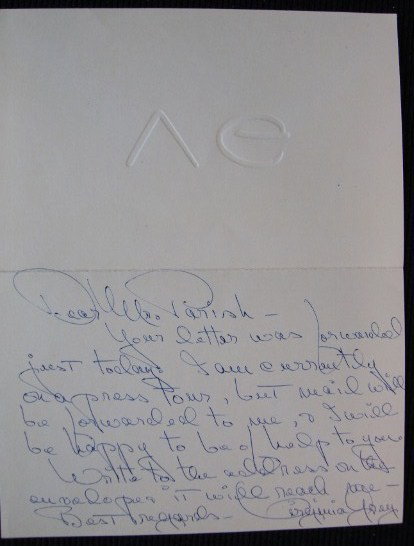 Λ Θ
Dear Mr. Parish -
Your letter was forwarded
just today. I am currently
on a press tour, but mail will
be forwarded to me, & I will
be happy to be of help to you.
Write to the address on the
envelope & it will reach me -
Best regards - Virginia